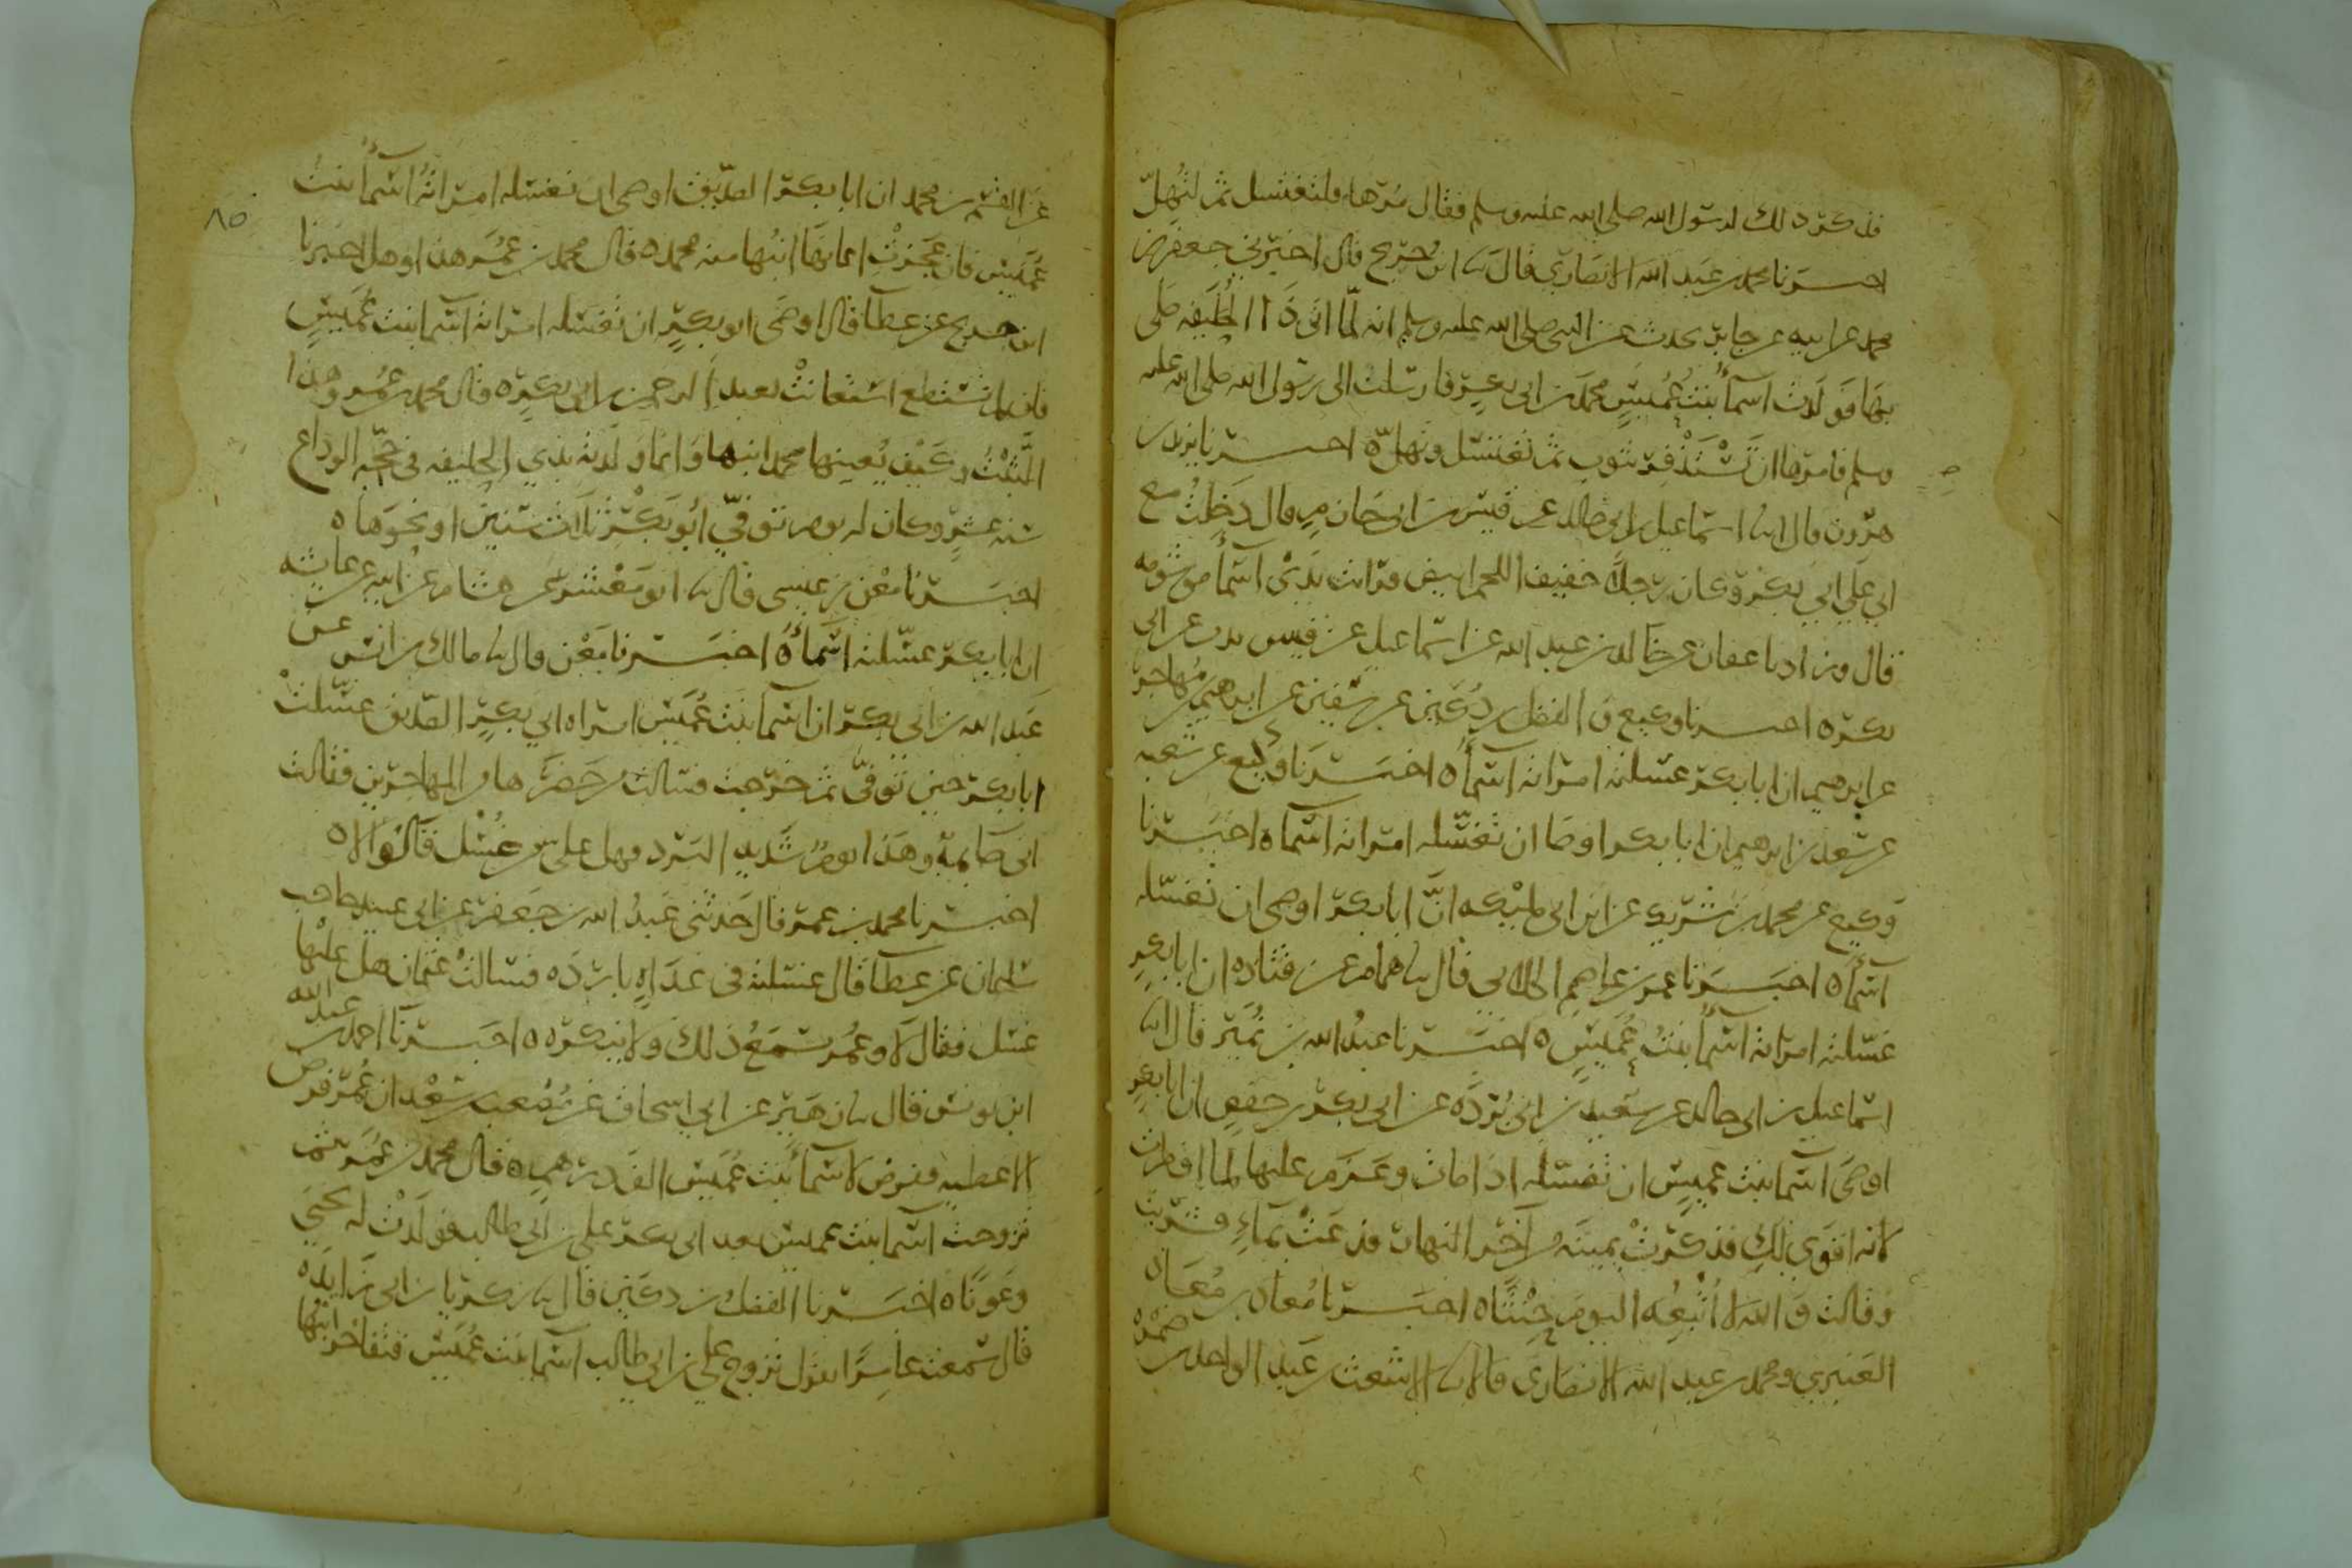 فذكر ذلك لرسول الله صلى الله عليه وسلم فقال مُرها فلتغتسل ثم لتُهِلّ
اخبرنا محمد بن عبد الله الانصاري قال نا ابن جُريج قال اخبرني جعفر بن
محمد عن ابيه عن جابر يحدث عن النبي صلى الله عليه وسلم انه لما اتى ذا الحُلَيفه صَلى
بها فَوَلَدَت اسمأُ بنتُ عُمَيسٍ محمدَ بن ابي بكرٍ فارسلت الى رسول الله صلى الله عليه
وسلم فامرها ان تَسْتَذفِرَ بثوب ثم تغتسل وتهلّ ه اخبرنا يزيد بن
هرون قال انا اسماعيل بن ابي خالد عن قيس بن ابي حازم قال دَخَلتُ مع
ابي علي ابي بكر وكان رجلاً خفيف اللحم ابيض فرايت يَدَيْ اسمأ موشومه
قال وزادنا عفان عن خالد بن عبد الله عن اسماعيل عن قيس تذب عن ابي
بكر ه اخبرنا وكيع و الفضل بن دُكَين عن سفين عن ابرهيم بن مُهاجر
عن ابرهيم ان ابا بكر غسلته امراته اسمأُ ه اخبرنا وكيع عن شعبه
عن سعد بن ابرهيم ان ابا بكر اوصا ان تغسّله امراته اسماء ه اخبرنا
وكيع عن محمد بن شريك عن ابن ابي مليْكه انَّ ابا بكر اوصى ان تغسّله
اسمأ ه اخبرنا عمرو بن عاصم الكلابي قال نا همام عن قتاده ان ابا بكرٍ
غسلته امراته اسمأُ بنتُ عُمَيسٍ ه اخبرنا عبدُ الله بن نُمَير قال انا
اسماعيل بن ابي خالد عن سعيد بن ابي بُرْدَه عن ابي بكر بن حفصٍ ان ابا بكرٍ
اوصَى اسما بنت عميسٍ ان تغسّله اذا مات وعَزَم عليها لما افطرت
لانه اقوى لكِ فذكرتْ يمينَه من آخر النهار فدعَتْ بماءٍ فشربت
وقالت والله لا اُتْبِعُه اليوم حِنْثًا ه اخبرنا مُعاذ بن مُعاذ
العنبري ومحمد بن عبد الله الانصاري قالا نا الاشعث عن عَبد الواحد بن صَبْرَه
٨٥
عن القسم بن محمد ان ابا بكر الصدّيق اوصى ان تغسّله امراتُه اسمأُ بنتُ
عُمَيس فان عَجَزتْ اعانها ابنُها منه محمد ه قال محمد بن عُمَر هذا وهل اخبرنا
ابن جريج عن عطا قال اوصَى ابو بكرٍ ان تغسّله امراته اسما بنت عُمَيسٍ
فان لم تستطع استعانتْ بعبد الرحمن بن ابي بكر ه قال محمد بن عُمر وهذا
الثَّبْتُ وكيْف يُعينها محمد ابنها وانما وَلَدته بذي الحليفه في حَجّه الوداع
سنه عشرٍ وكان له يوم توفّي ابُو بَكْرٍ ثلاث سنين او نحوها ه
اخبرنا مَعْن بن عيسى قال نا ابو مَعْشر عن هشام عن ابيه عن عايشه
ان ابا بكر غسّلته اسمأُ ه اخبرنا مَعْن قال نا مالك بن انس عن
عبد الله بن ابي بكر ان اسما بنت عُمَيس امراه ابي بكرٍ الصدّيق غسّلتْ
ابا بكر حين توفّى ثم خرجت فسالتْ من حَضَرَها من المهاجرين فقالت
اني صَايمة وهَذا يومٌ شديد البرد فهل علىّ من غُسْل قالوا لا ه
اخبرنا محمد بن عمر قال حَدثني عَبدُ الله بن جعفر عن ابي عبيد حاجب
سليمان عن عطا قال غسّلته في غداهٍ بارده فسالتْ عثمان هل عليها
غسل فقال لا وعُمر يسمَعُ ذلك ولا ينكره ه اخبرنا احمد بن عبد الله
ابن يونس قال نا زهَير عن ابي اسحاق عن مُصْعب بن سَعْد ان عُمَر فرض
الاعطيه ففرض لاسمأ بنت عُمَيس الف درهمٍ ه قال محمد بن عُمَر ثم
تزوجت اسما بنت عميس بعد ابي بكر علي بن ابي طالب فولَدَتْ له يحيَى
وعَونًا ه اخبرنا الفضلُ بن دكَين قال نا زكريا بن ابي زايده
قال سَمعت عامرًا يقول تزوج علي بن ابي طالب اسما بنت عُمَيس فتفاخر ابنُها